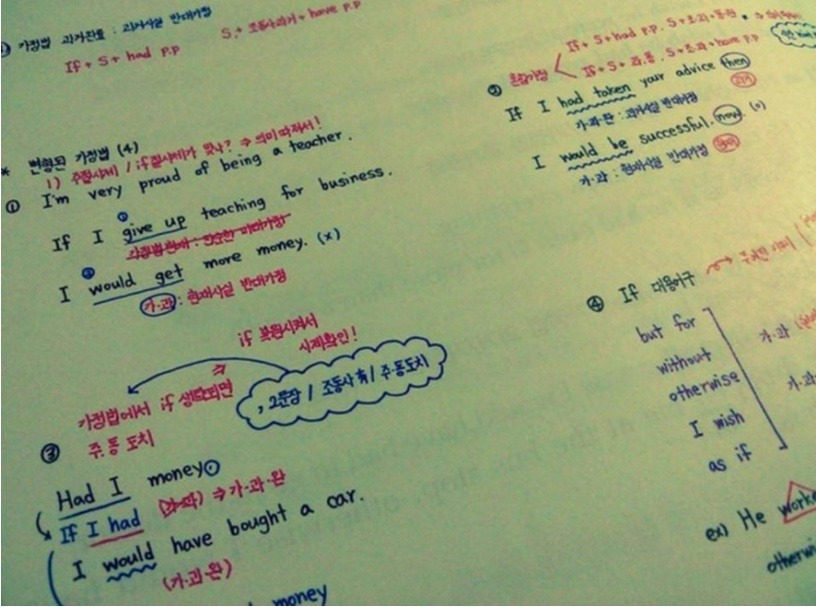 가정법 과거완료 : 과거사실 반대가정
If + S + had p.p S + 조동사과거 + have p.p
* 변형된 가정법 (4)
1) 주절시제 / if절시제가 맞나? ⇒ 의미따져서!
① I'm very proud of being a teacher.
If I give up teaching for business.
I would get more money. (x)
가·과 : 현재사실 반대가정
If + S + had p.p, S + 조·과 + 동원
② 혼합가정
If + S + 과·동, S + 조·과 + have p.p
If I had taken your advice then
가·과·완 : 과거사실 반대가정 과거
I would be successful, now. (o)
가·과 : 현재사실 반대가정 현재
if 복원시켜서
시제확인!
가정법에서 if 생략되면
, 2문장 / 조동사 有 / 주·동도치
③ 주·동 도치
Had I money
If I had (가·과) ⇒ 가·과·완
I would have bought a car.
(가·과·완)
money
④ If 대용어구
but for
without
otherwise
I wish
as if
가·과
가·과
ex) He worke
otherwi